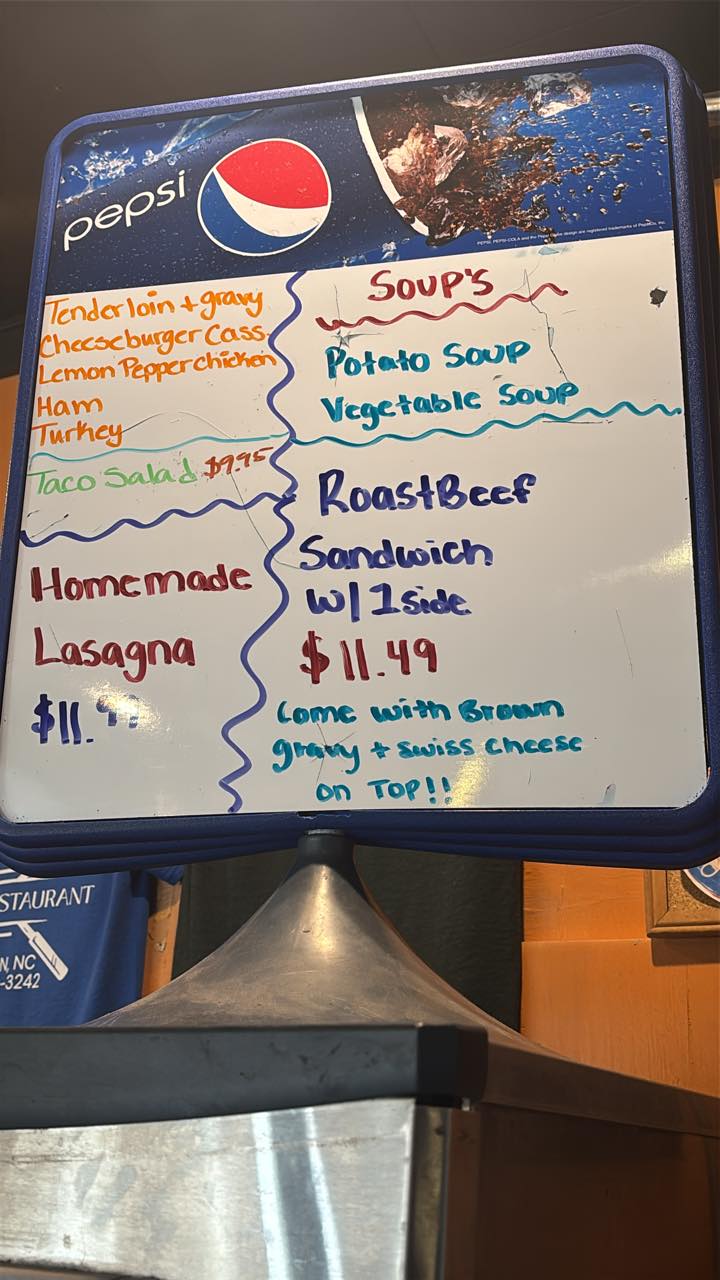 pepsi
PEPSI, PEPSI-COLA and the Pepsi Globe design are registered trademarks of PepsiCo, Inc.
Tenderloin + gravy
Cheeseburger Cass.
Lemon Pepper chicken
Ham
Turkey
Taco Salad $9.95
Homemade
Lasagna
$11.
Soup's
Potato Soup
Vegetable Soup
Roast Beef
Sandwich
w/ 1 side
$11.49
Come with Brown
gravy + swiss cheese
on TOP!!
STAURANT
N, NC
-3242